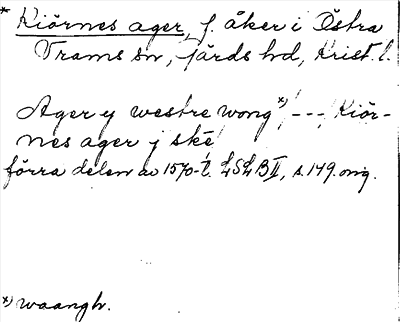 * Kiörnes ager, f. åker i Östra
Trams sn, järds hd, Krist. l.
Ager y westre wong *) --- Kiör-
nes ager j ske
förra delen av 1570-t. LSLB II, s. 149. orig.
*) waangh.